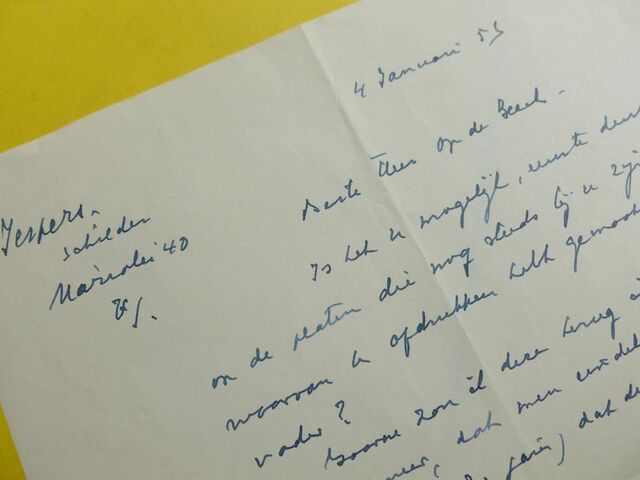 4 Januari 53
Jespers.
schilder
Marialei 40
Beste Heer Op de Beeck.
Is het u mogelijk, eerste
op de platen die nog steeds bij u zijn
waarvan U afdrukken hebt gemaakt
vader?
Gaarne zou ik deze terug
dat men
dat de